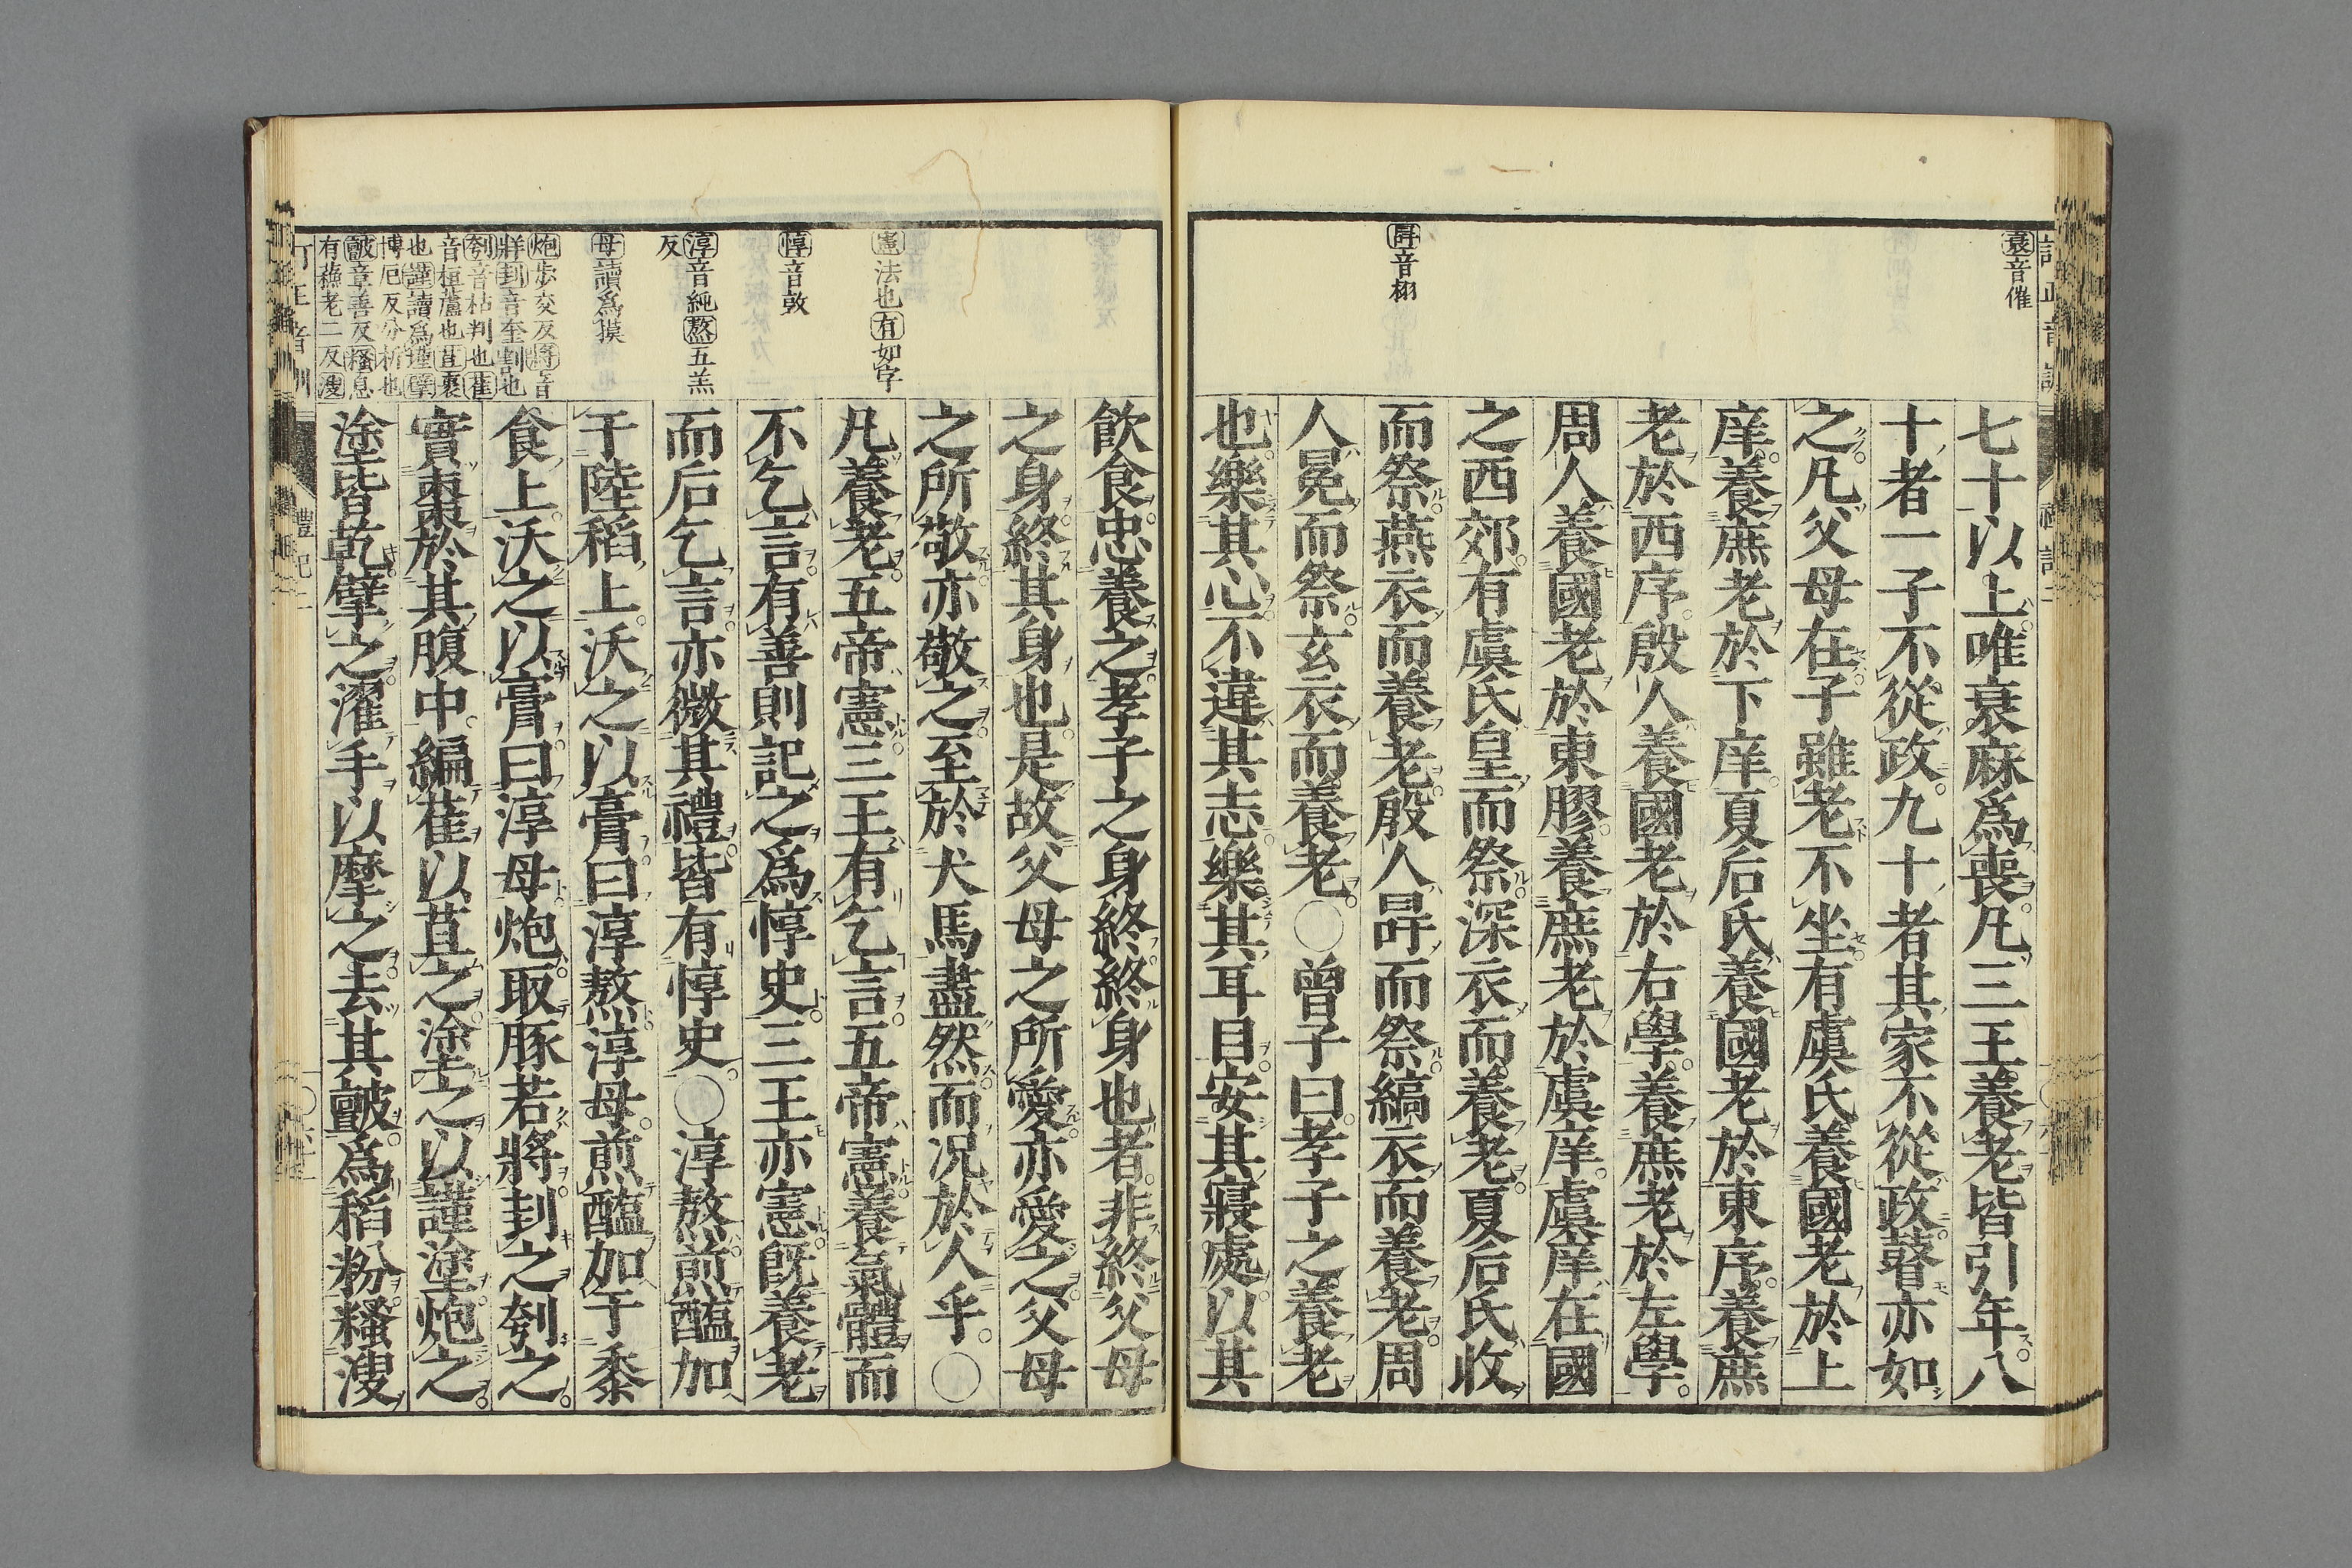 衰音催
冔音栩
七十以上唯衰麻爲喪凡三王養老皆引年八
十者一子不從政九十者其家不從政瞽亦如
之凡父母在子雖老不坐有虞氏養國老於上
庠養庶老於下庠夏后氏養國老於東序養庶
老於西序殷人養國老於右學養庶老於左學
周人養國老於東膠養庶老於虞庠虞庠在國
之西郊有虞氏皇而祭深衣而養老夏后氏收
而祭燕衣而養老殷人冔而祭縞衣而養老周
人冕而祭玄衣而養老○曾子曰孝子之養老
也樂其心不違其志樂其耳目安其寢處以其
憲法也有如字
惇音敦
淳音純熬五羔
反
母讀爲模
炮步交反將音
牂刲音奎割也
刳音枯判也萑
音桓蘆也苴裹
也謹讀爲墐擘
博厄反分析也
皽章善反糔息
有糱老二反溲
飲食忠養之孝子之身終終身也者非終父母
之身終其身也是故父母之所愛亦愛之父母
之所敬亦敬之至於犬馬盡然而況於人乎○
凡養老五帝憲三王有乞言五帝憲養氣體而
不乞言有善則記之爲惇史三王亦憲既養老
而后乞言亦微其禮皆有惇史○淳熬煎醢加
于陸稻上沃之以膏曰淳熬淳母煎醢加于黍
食上沃之以膏曰淳母炮取豚若將刲之刳之
實棗於其腹中編萑以苴之塗之以謹塗炮之
塗皆乾擘之濯手以摩之去其皽爲稻粉糔溲
禮記二